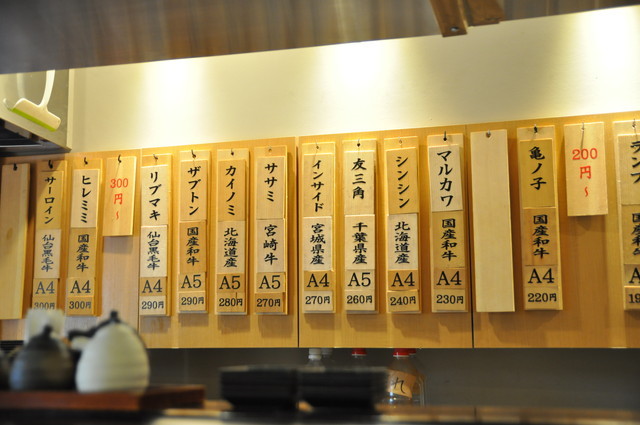 サーロイン
仙台黒毛牛
A4
300円
ヒレミミ
国産和牛
A4
300円
300円〜
リブマキ
仙台黒毛牛
A4
290円
ザブトン
国産和牛
A5
290円
カイノミ
北海道産
A5
280円
ササミ
宮崎牛
A5
270円
インサイド
宮城県産
A4
270円
友三角
千葉県産
A5
260円
シンシン
北海道産
A4
240円
マルカワ
国産和牛
A4
230円
亀ノ子
国産和牛
A4
220円
200円〜
ランプ
A4